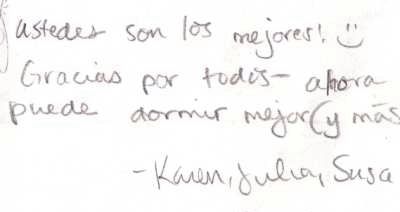 ustedes son los mejores! ☺
Gracias por todos - ahora
puede dormir mejor (y más
- Karen, Julia, Susa